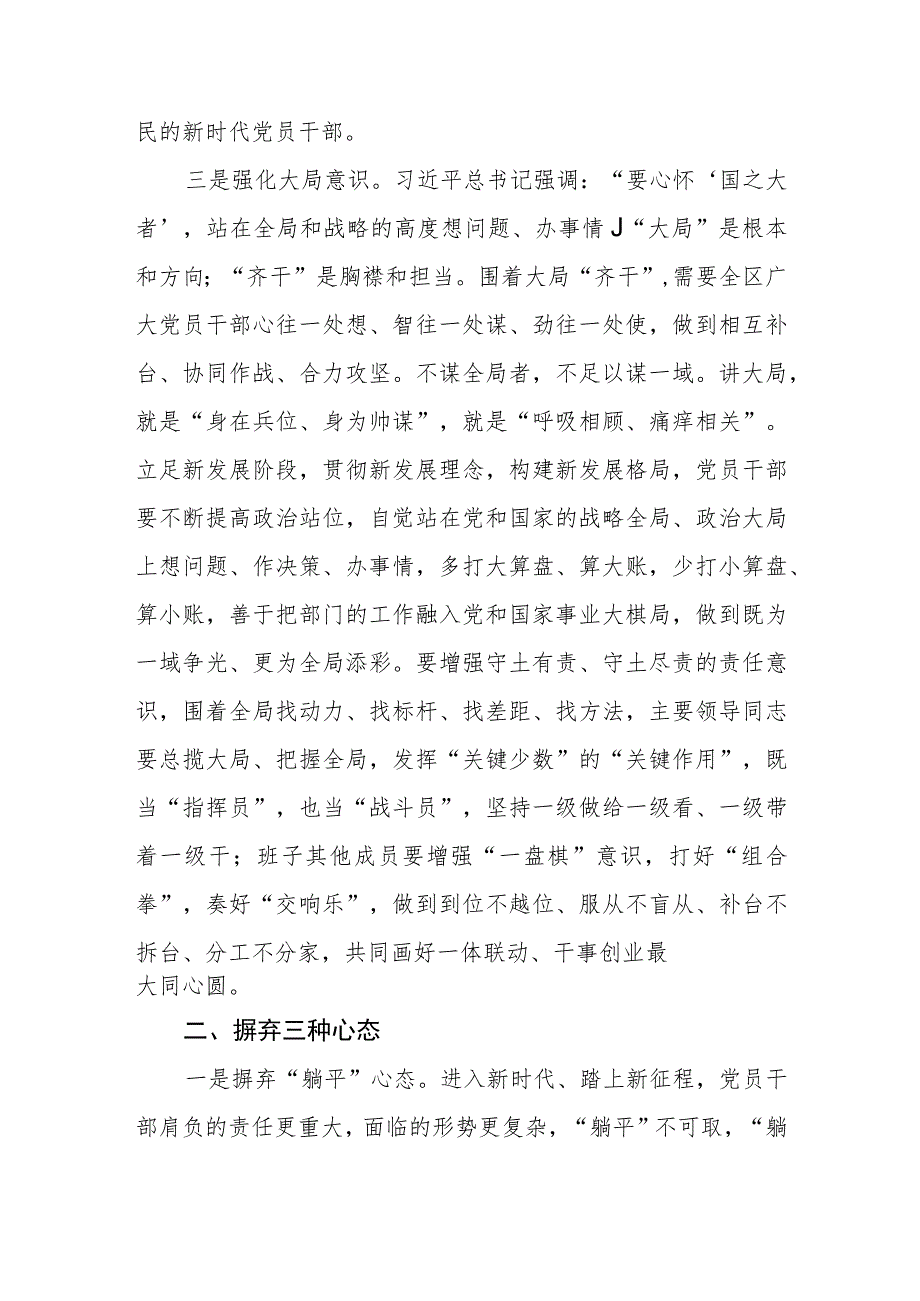 民的新时代党员干部。
三是强化大局意识。习近平总书记强调：“要心怀‘国之大
者’，站在全局和战略的高度想问题、办事情J“大局”是根本
和方向；“齐干”是胸襟和担当。围着大局“齐干”,需要全区广
大党员干部心往一处想、智往一处谋、劲往一处使，做到相互补
台、协同作战、合力攻坚。不谋全局者，不足以谋一域。讲大局，
就是“身在兵位、身为帅谋”，就是“呼吸相顾、痛痒相关”。
立足新发展阶段，贯彻新发展理念，构建新发展格局，党员干部
要不断提高政治站位，自觉站在党和国家的战略全局、政治大局
上想问题、作决策、办事情，多打大算盘、算大账，少打小算盘、
算小账，善于把部门的工作融入党和国家事业大棋局，做到既为
一域争光、更为全局添彩。要增强守土有责、守土尽责的责任意
识，围着全局找动力、找标杆、找差距、找方法，主要领导同志
要总揽大局、把握全局，发挥“关键少数”的“关键作用”，既
当“指挥员”，也当“战斗员”，坚持一级做给一级看、一级带
着一级干；班子其他成员要增强“一盘棋”意识，打好“组合
拳”，奏好“交响乐”，做到到位不越位、服从不盲从、补台不
拆台、分工不分家，共同画好一体联动、干事创业最
大同心圆。
二、摒弃三种心态
一是摒弃“躺平”心态。进入新时代、踏上新征程，党员干
部肩负的责任更重大，面临的形势更复杂，“躺平”不可取，“躺